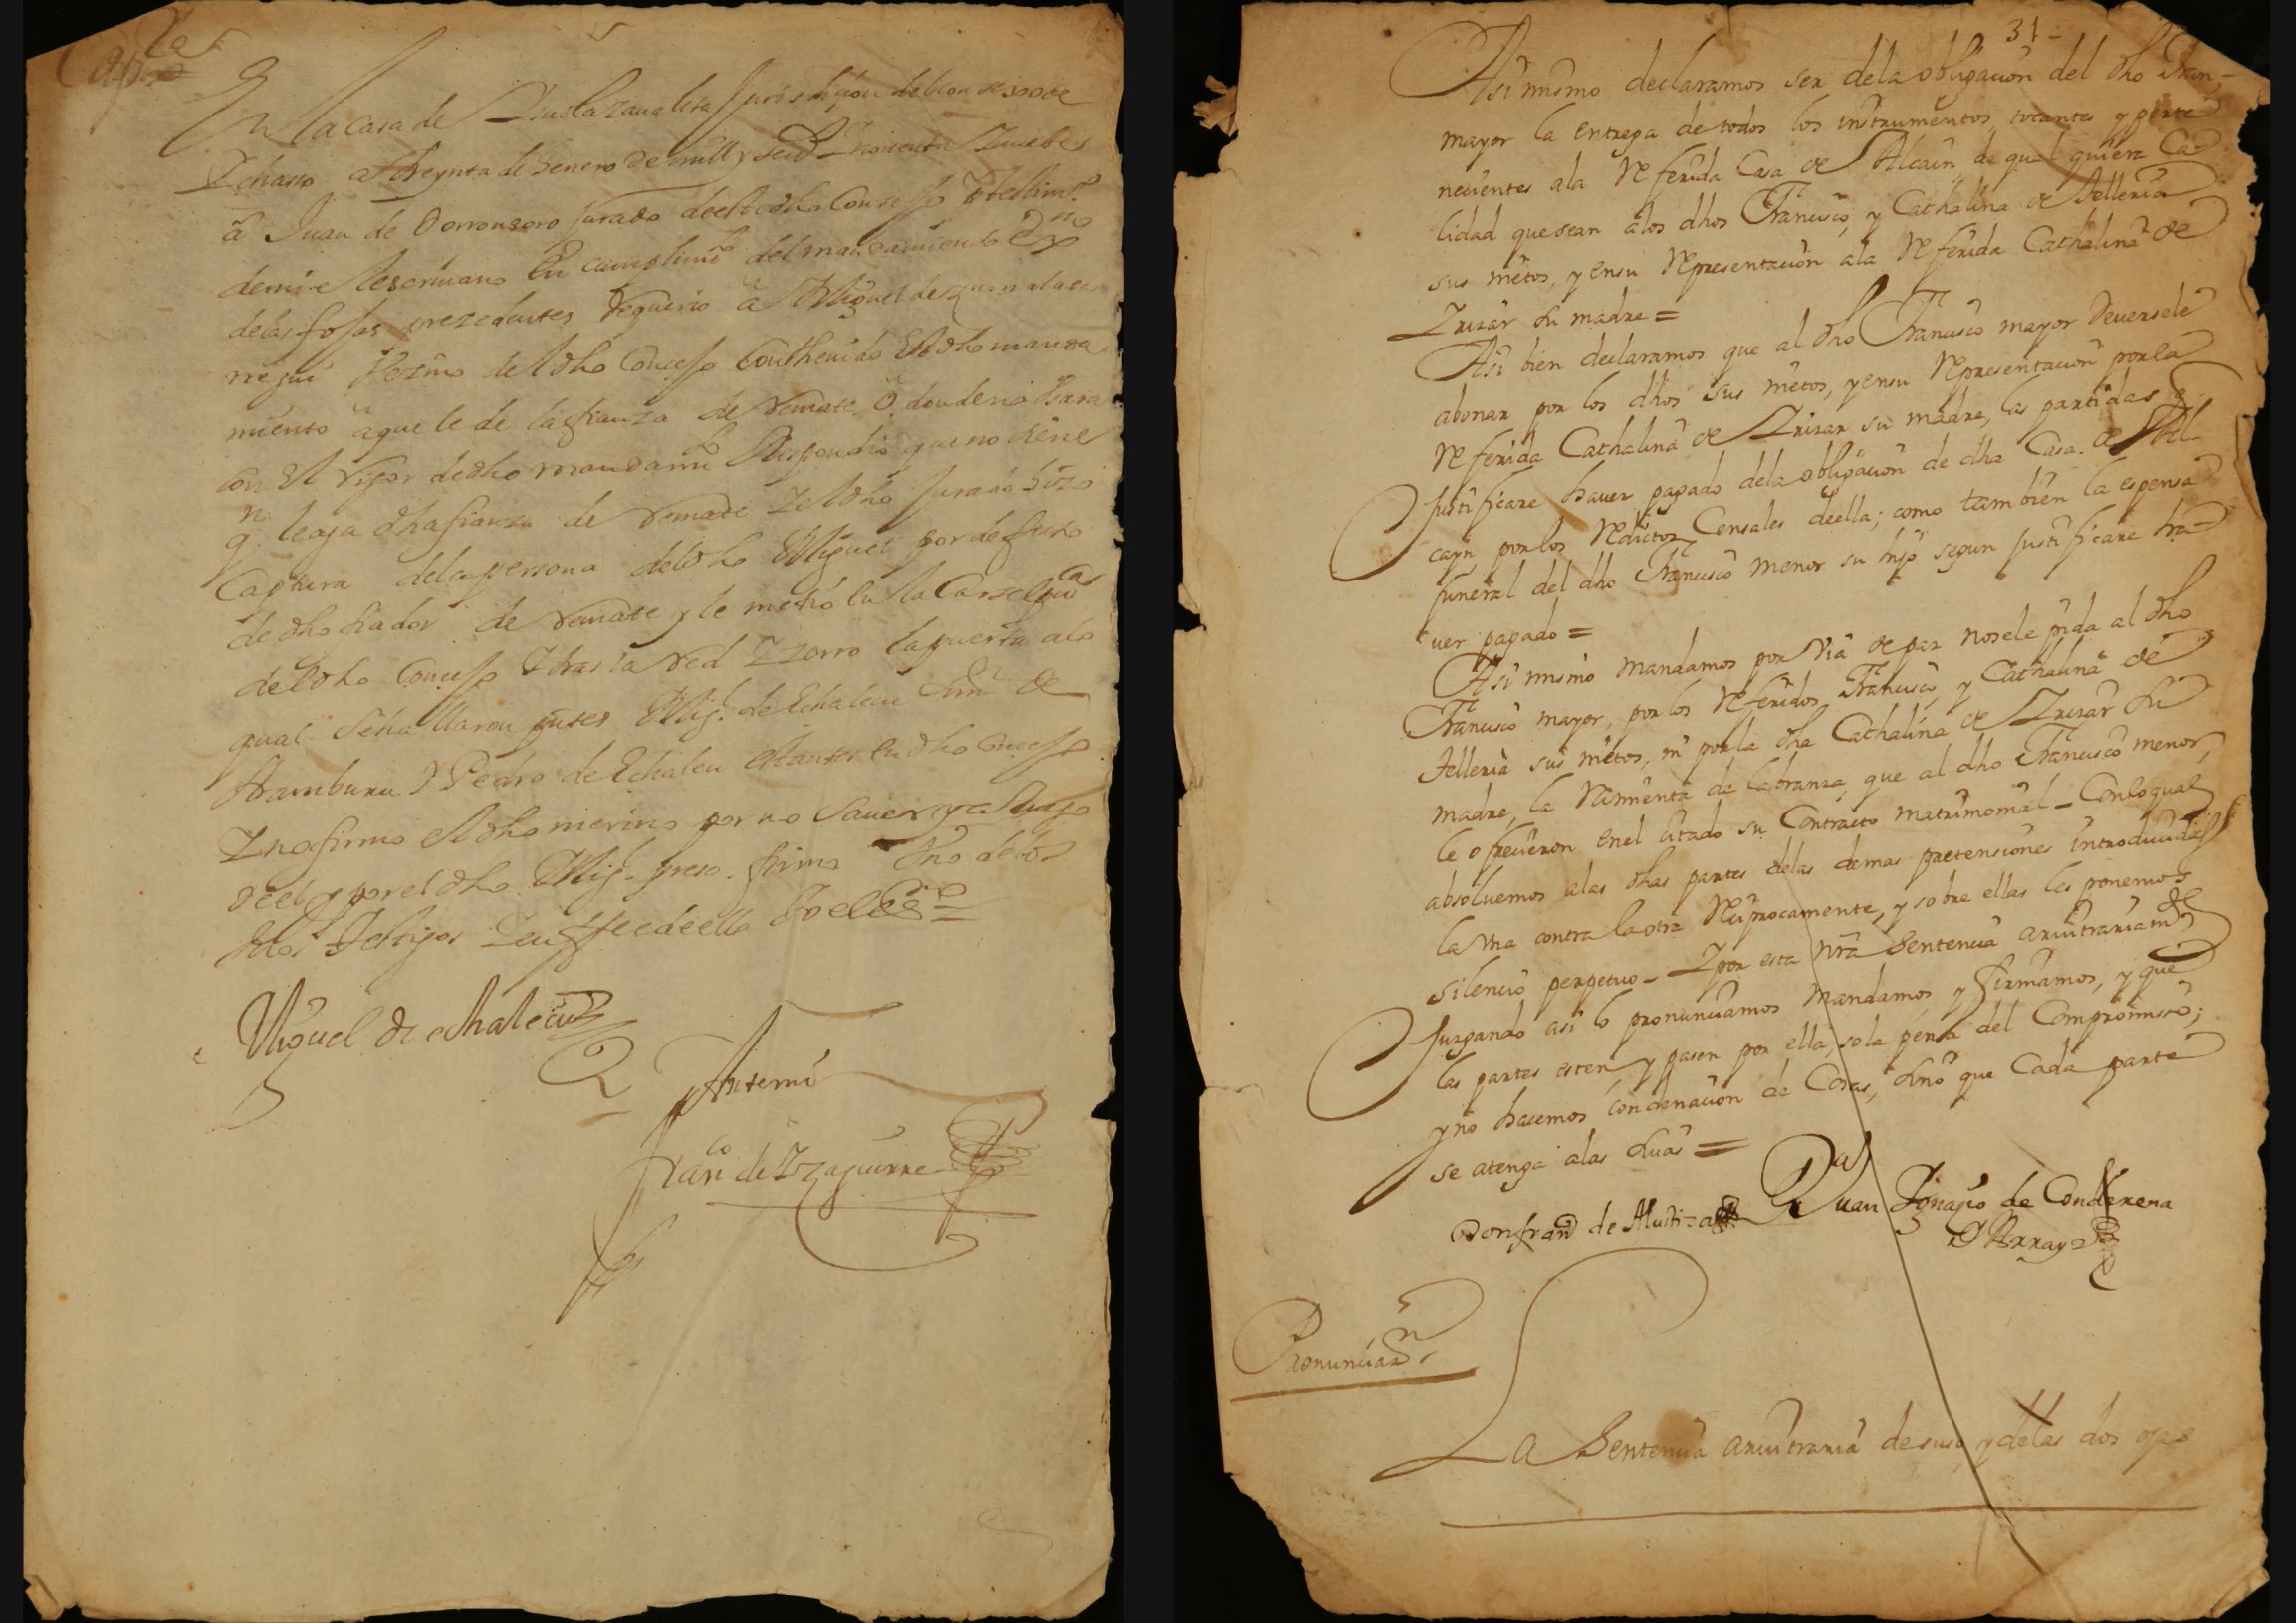 En la casa de
Ychaso a treynta de henero de mill y seis. y nouenta y nuebe
a Juan de Dorronsoro Jurado de el dho Concejo
de mi el escriuano En cumplimto del mandamiento
de las fojas prezedentes Requirio a Miguel de
rregui Vezino del dho Concejo Conthenido En dho manda
miento a que le de la fianza de Remate
con El rigor de dho mandamto Respondio que no tiene
q. le aga dha fianza de Remate y el dho Jurado hizo
Captura de la persona del dho Miguel por defecto
de dho fiador de Remate y le metio en la Carsel
del dho Concejo y tras la red y zerro la puerta a lo
qual se hallaron Mig. de Echalecu
Aramburu y Pedro de Echalecu estantes en dho Concejo
y no firmo el dho merino por no sauer y a Ruego
de el y por el dho Mig. preso. firmo Vno de
dhos Testigos y en ffee de ello Yo el esno
Miguel de echalecu
Antemi
Franco de Yzaguirre
31-
Asi mismo declaramos ser de la obligacion del dho Fran-
mayor la entrega de todos los instrumentos, tocantes y perte
necientes a la Referida Casa de Alcain, de qualquiera Ca-
lidad que sean a los dhos Francisco, y Cathalina de Telleria
sus nietos, y en su Representacion a la Referida Cathalina de
Yrizar su madre =
Asi bien declaramos que al dho Francisco mayor deuersele
abonar por los dhos sus nietos, y en su Representacion por la
Referida Cathalina de Yrizar su madre, las partidas q.
justificare hauer pagado de la obligacion de dha Casa de Al-
cayn por los Reditos Censales de ella; como tambien la espensa
funeral del dho Francisco menor su hijo segun justificare ha-
uer pagado =
Asi mismo mandamos por via de paz no se le pida al dho
Francisco mayor, por los Referidos Francisco, y Cathalina de
Telleria sus nietos, ni por la dha Cathalina de Yrizar su
madre, la Raimienta de labranza, que al dho Francisco menor,
le ofrecieron en el citado su Contracto matrimonial - Con lo qual
absoluemos a las dhas partes de las demas pretensiones introducidas
la vna contra la otra Reciprocamente, y sobre ellas les ponemos
silencio perpetuo - Y por esta nra Sentencia aruitrariamte
juzgando asi lo pronunciamos mandamos, y firmamos, y que
las partes esten y pasen por ella, so la pena del Compromisso;
y no hacemos condenacion de Costas, sino que Cada parte
se atenga a las suas =
Don fran de Aluiti Juan Ignaçio de Conderena
Pronunciazn
La Sentencia aruitraria de suso, y de las dos ojas